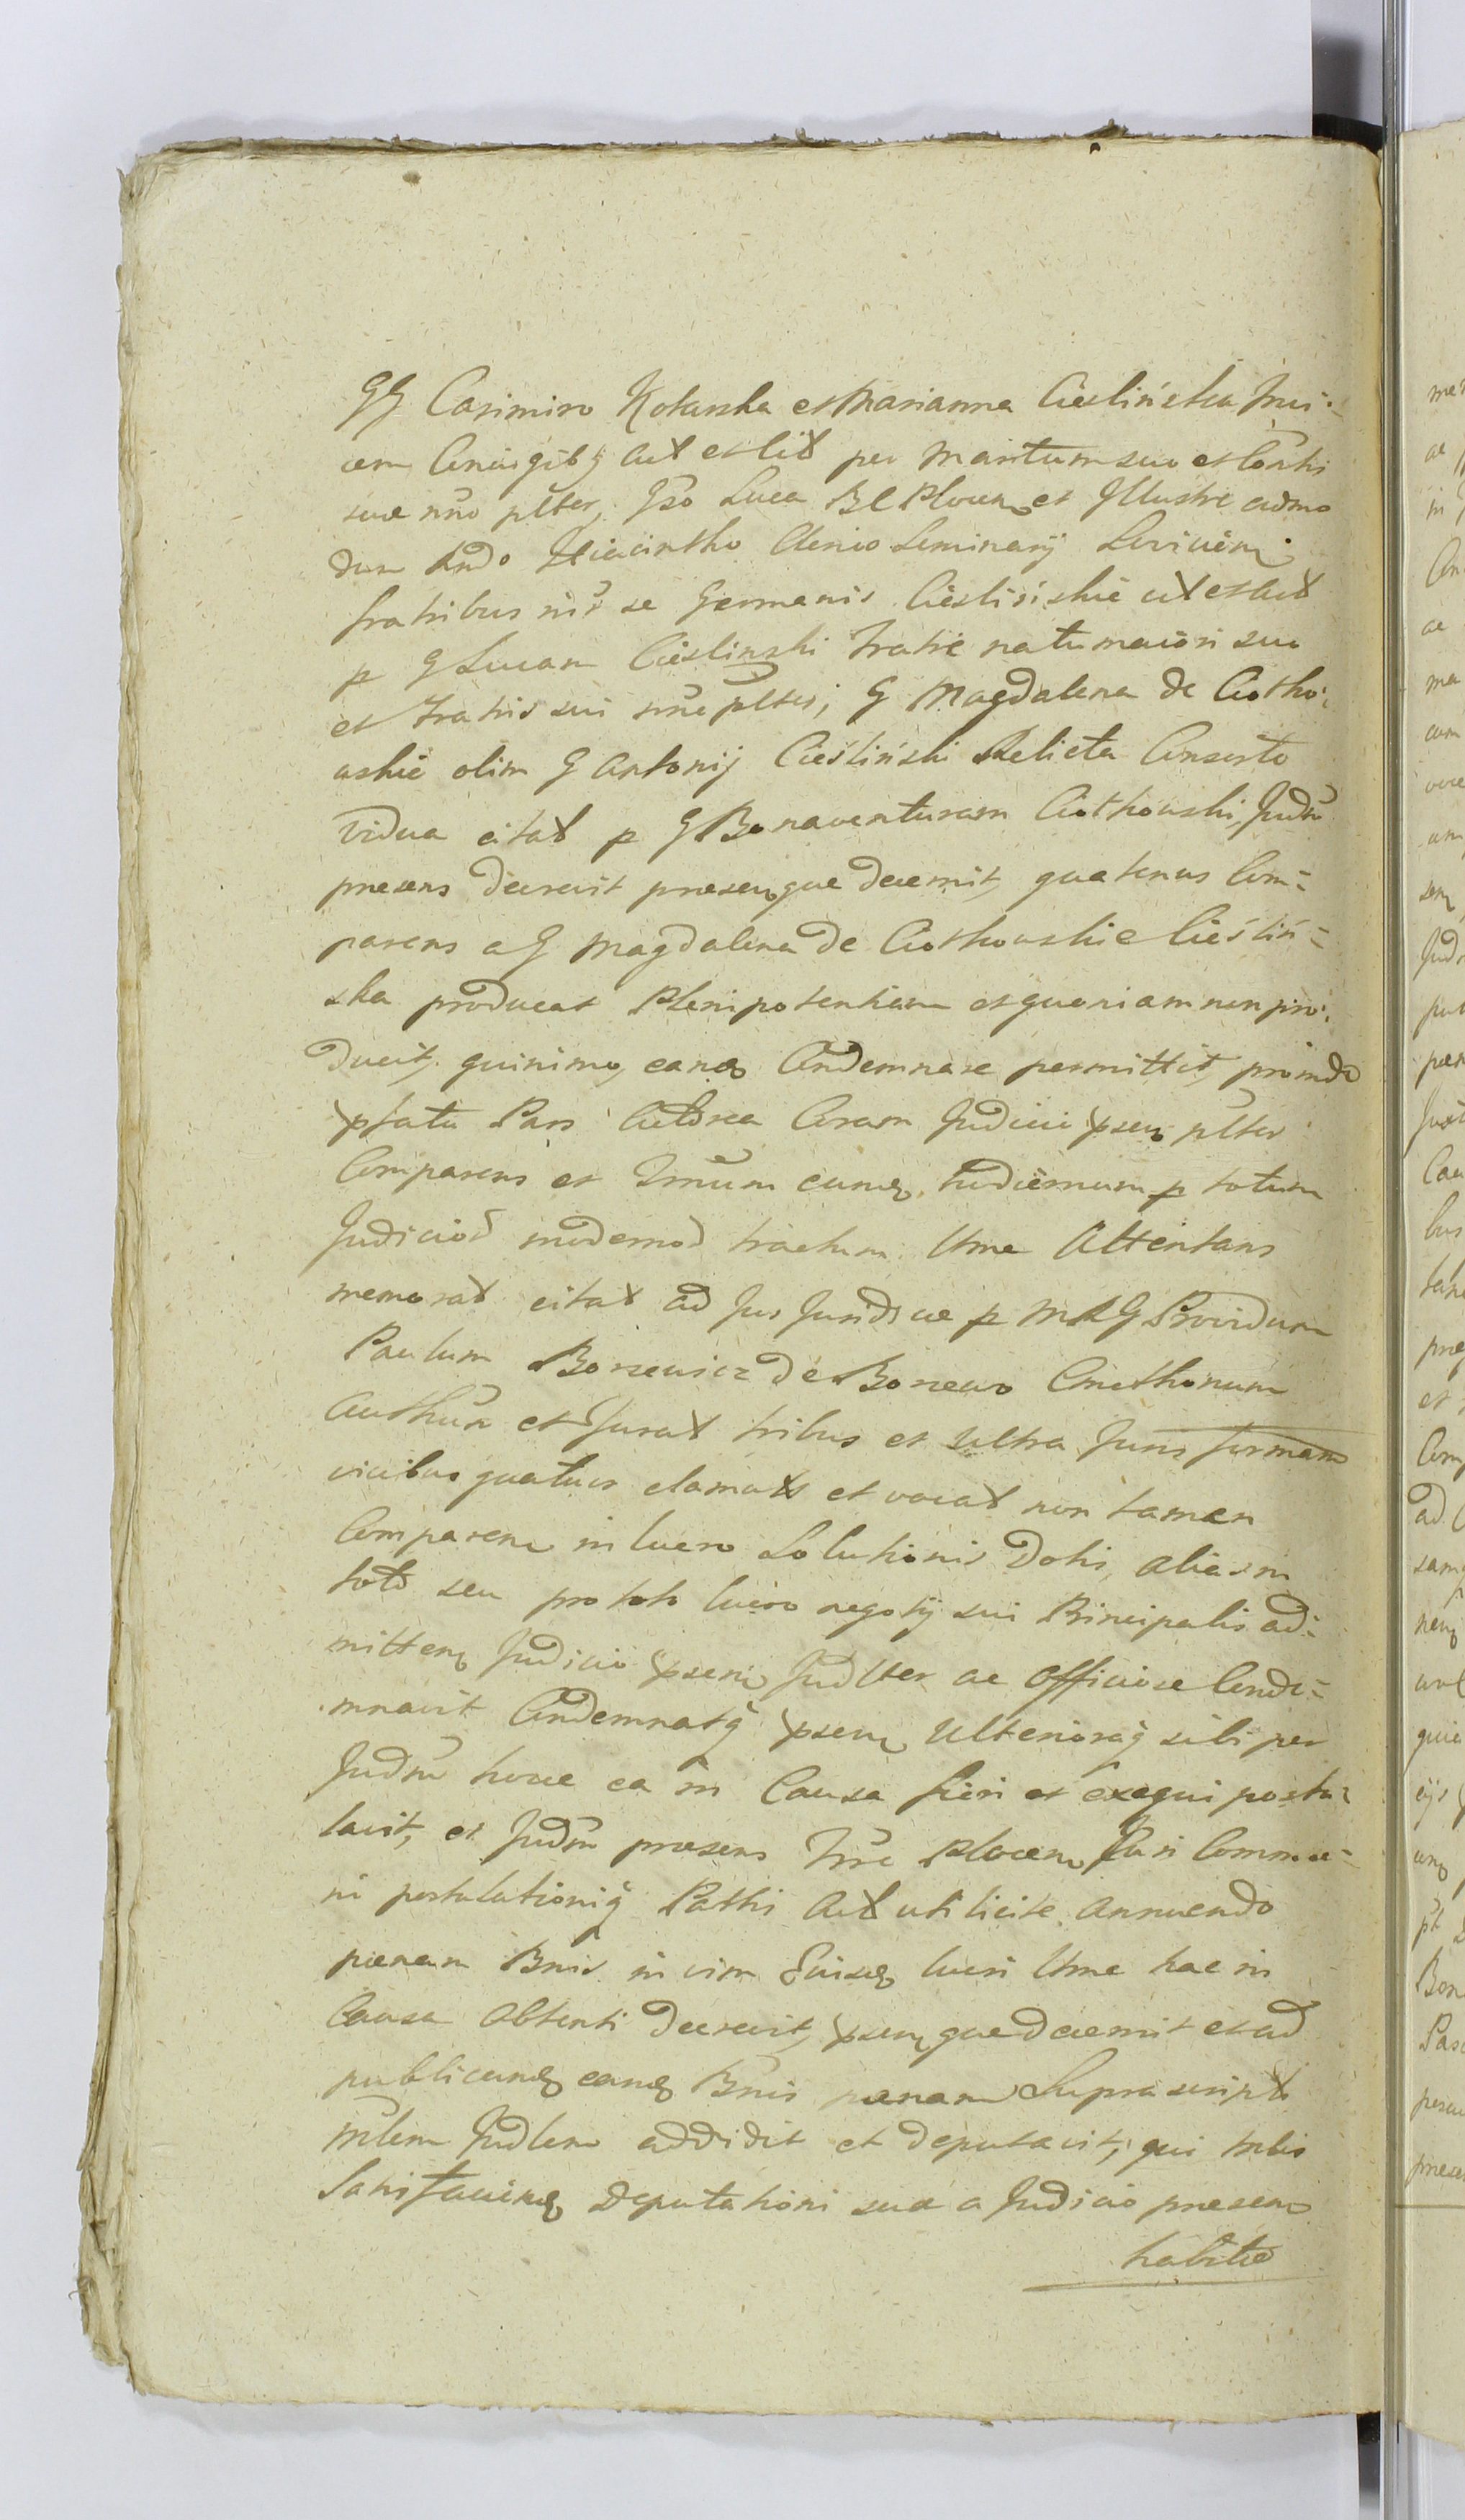 GG Casimiro Kotarska et Marianna Cieslińska Invi-
cem Conjugibq Act et Cit per Maritum suo et Cortis
suae nno plter, Gso Luca BC Plocen et Illustri admo
dum Rndo Hiacintho Clerico Seminarij Lovicien
fratribus int se Germanis Cieslińskie cit et act
p G Lucam Cieslinski Fratre natu maiori suo
et Fratris sui nne plter; G Magdalena de Ciotko-
wskie olim G Antonij Cieśliński Relicta Consorte
Vidua citat p G Bonaventuram Ciotkowski, Judm
presens decrevit presenque decernit, quatenus Com=
parens a G Magdalena de Ciotkowskie Cieśliń=
ska producat Plenipotentiam et quoniam non pro-
ducit, quinimo, eanq Condemnare permittit, proinde
pfata Pars Actorea Coram Judicio psen plter
Comparens et Trnum eumq hodiernum p totum
Judiciod modernod tractum Ltme Attentans
memorat citat ad Jus Jurid ce p MRG Providum
Paulum Borzewicz de Borzewo Cmethonum
Authen et Jurat tribus et ultra Juris formam
vicibus quatuor clamat et vocat non tamen
Comparen in lucro Solutionis Dotis, alias in
toto seu pro toto lucro negotij sui Principalis ad=
mitten Judicio psen Judlter ac officiose Conde=
mnavit Condemnatq psen Ulterioraq sibi per
Judm hocce ea in Causa fieri et exequi postu=
lavit, et Judm praesens Trre Plocen Juri Commu=
ni postulationiq Partis Act uti licite annuendo
paenam Bnis in vim huiusq lucri Ltme hac in
Causa Obtenti decrevit, psenque decernit et ad
publicanq eanq Bnis paenam Supra script
Mlem Judlem addidit et deputavit, qui talis
Satisfaciens deputationi suae a Judicio presen
habitae